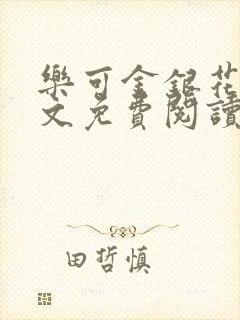 樂可金銀花
文免費閱讀
田哲慎